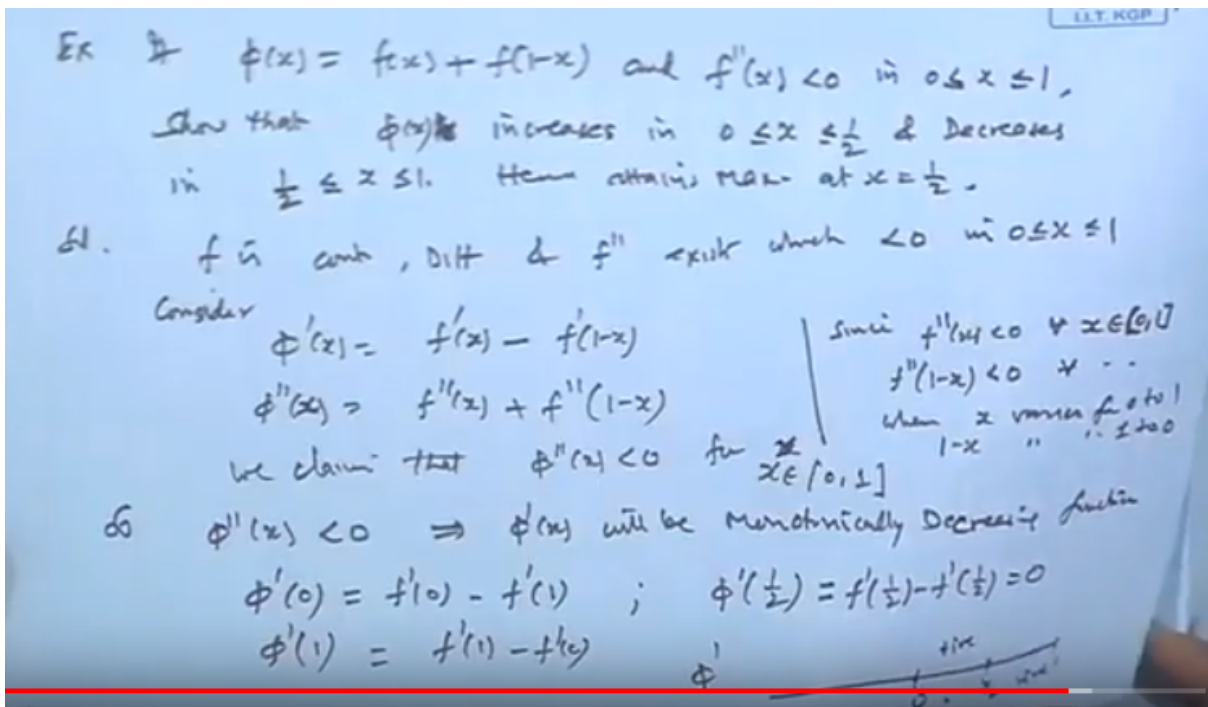 I.I.T. KGP
Ex If φ(x) = f(x) + f(1-x) and f''(x) <0 in 0≤ x ≤1,
Show that φ(x) increases in 0 ≤x ≤ 1/2 & Decreases
in 1/2 ≤ x ≤1. Hence attains max. at x = 1/2.
Sol. f is cont, Diff & f'' exist which <0 in 0≤x≤1
Consider
φ'(x) = f'(x) - f'(1-x)
φ''(x) = f''(x) + f''(1-x)
we claim that φ''(x) <0 for
x∈[0,1]
Since f''(x) <0 ∀ x∈[0,1]
f''(1-x) <0 ∀ ..
when x varies 0 to 1
1-x " " 1 to 0
So φ''(x) <0 ⇒ φ'(x) will be Monotonically Decreasing function
φ'(0) = f'(0) - f'(1) ; φ'(1/2) = f'(1/2)-f'(1/2) =0
φ'(1) = f'(1) - f'(0)
φ'
+ive
0